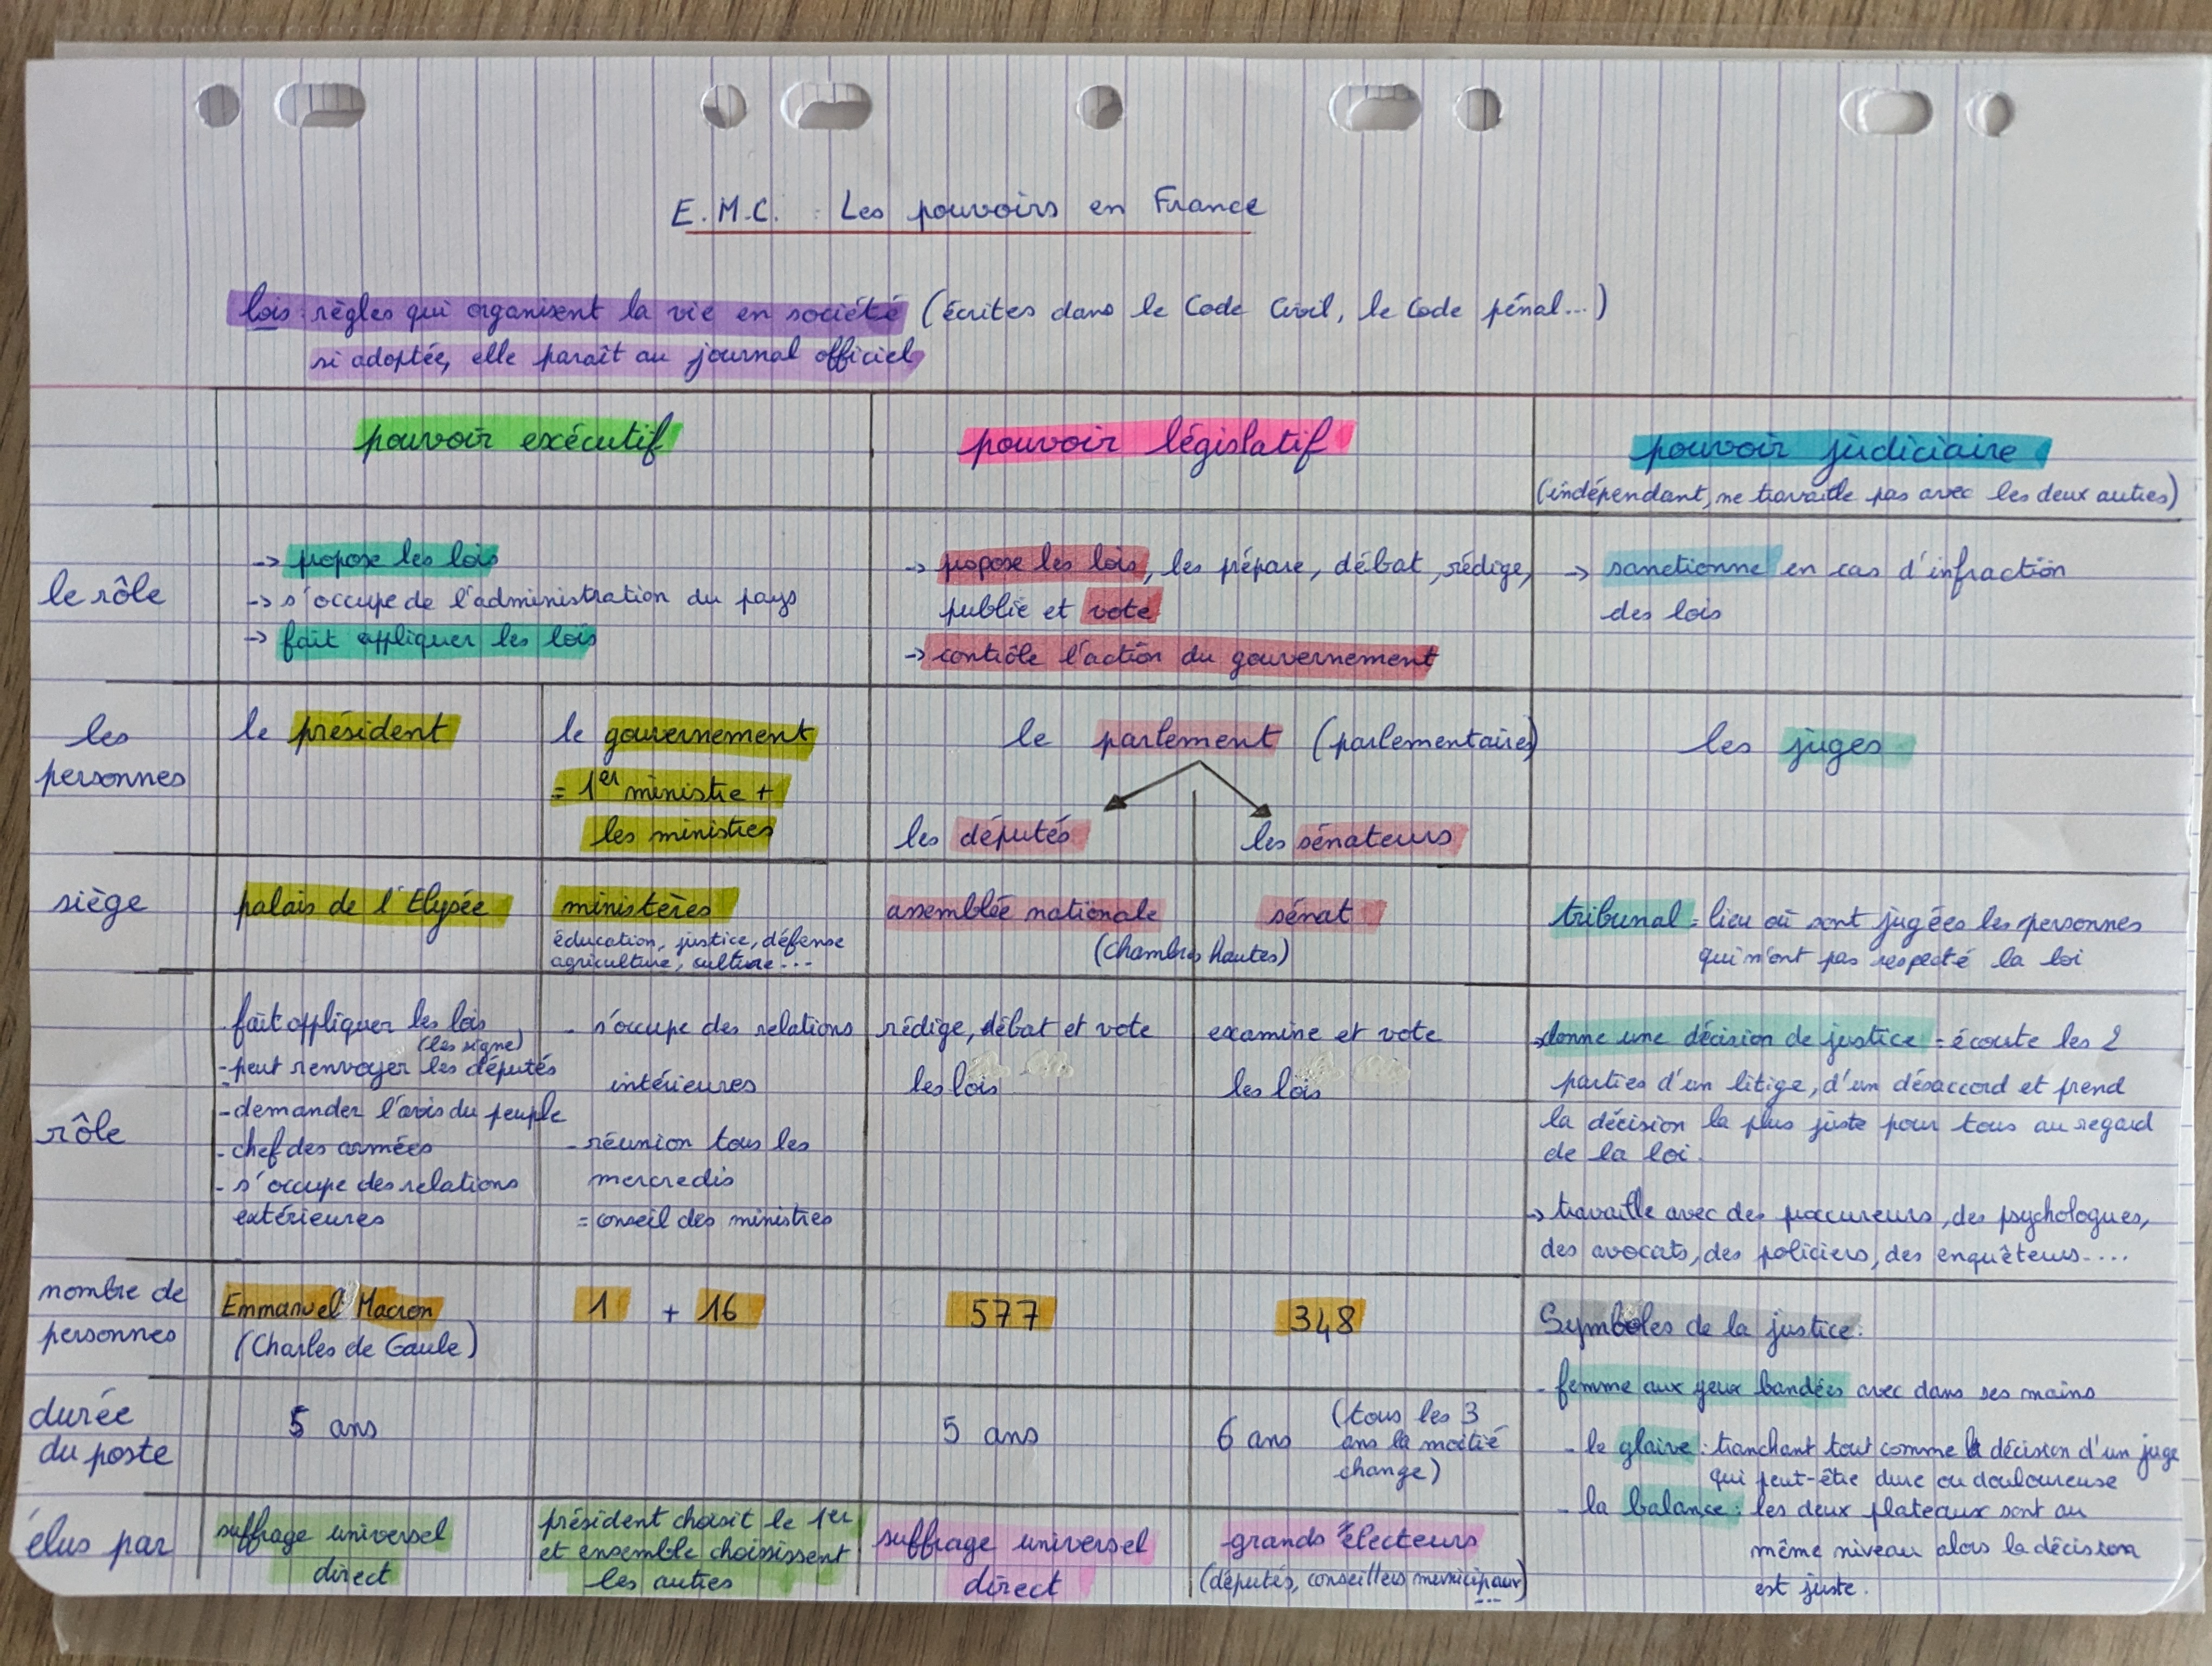 E.M.C. : Les pouvoirs en France
lois : règles qui organisent la vie en société (écrites dans le Code Civil, le Code pénal...)
si adoptée, elle paraît au journal officiel
pouvoir exécutif
pouvoir législatif
pouvoir judiciaire
(indépendant, ne travaille pas avec les deux autres)
le rôle
-> propose les lois
-> s'occupe de l'administration du pays
-> fait appliquer les lois
-> propose les lois, les prépare, débat, rédige,
publie et vote
-> contrôle l'action du gouvernement
-> sanctionne en cas d'infraction
des lois
les
personnes
le président
le gouvernement
= 1er ministre +
les ministres
le parlement (parlementaires)
les députés
les sénateurs
les juges
siège
palais de l'Elysée
ministères
éducation, justice, défense
agriculture, culture...
assemblée nationale
sénat
(chambres hautes)
tribunal = lieu où sont jugées les personnes
qui n'ont pas respecté la loi
rôle
fait appliquer les lois
(les signe)
- peut renvoyer les députés
- demander l'avis du peuple
- chef des armées
- s'occupe des relations
extérieures
- s'occupe des relations
intérieures
- réunion tous les
mercredis
= conseil des ministres
rédige, débat et vote
les lois
examine et vote
les lois
-> donne une décision de justice = écoute les 2
parties d'un litige, d'un désaccord et prend
la décision la plus juste pour tous au regard
de la loi.
-> travaille avec des procureurs, des psychologues,
des avocats, des policiers, des enquêteurs....
nombre de
personnes
Emmanuel Macron
(Charles de Gaule)
1 + 16
577
348
Symboles de la justice :
- femme aux yeux bandées avec dans ses mains
- le glaive : tranchant tout comme la décision d'un juge
qui peut-être dure ou douloureuse
- la balance : les deux plateaux sont au
même niveau alors la décision
est juste.
durée
du poste
5 ans
5 ans
6 ans
(tous les 3
ans la moitié
change)
élus par
suffrage universel
direct
président choisit le 1er
et ensemble choisissent
les autres
suffrage universel
direct
grands électeurs
(députés, conseillers municipaux)
...